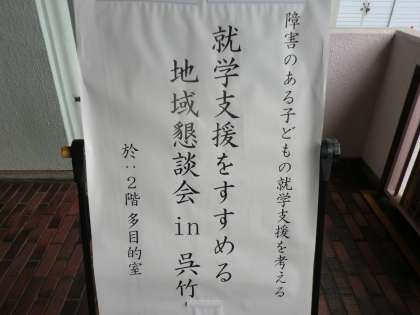 障害のある子どもの就学支援を考える
就学支援をすすめる
地域懇談会 in 呉竹
於：２階 多目的室